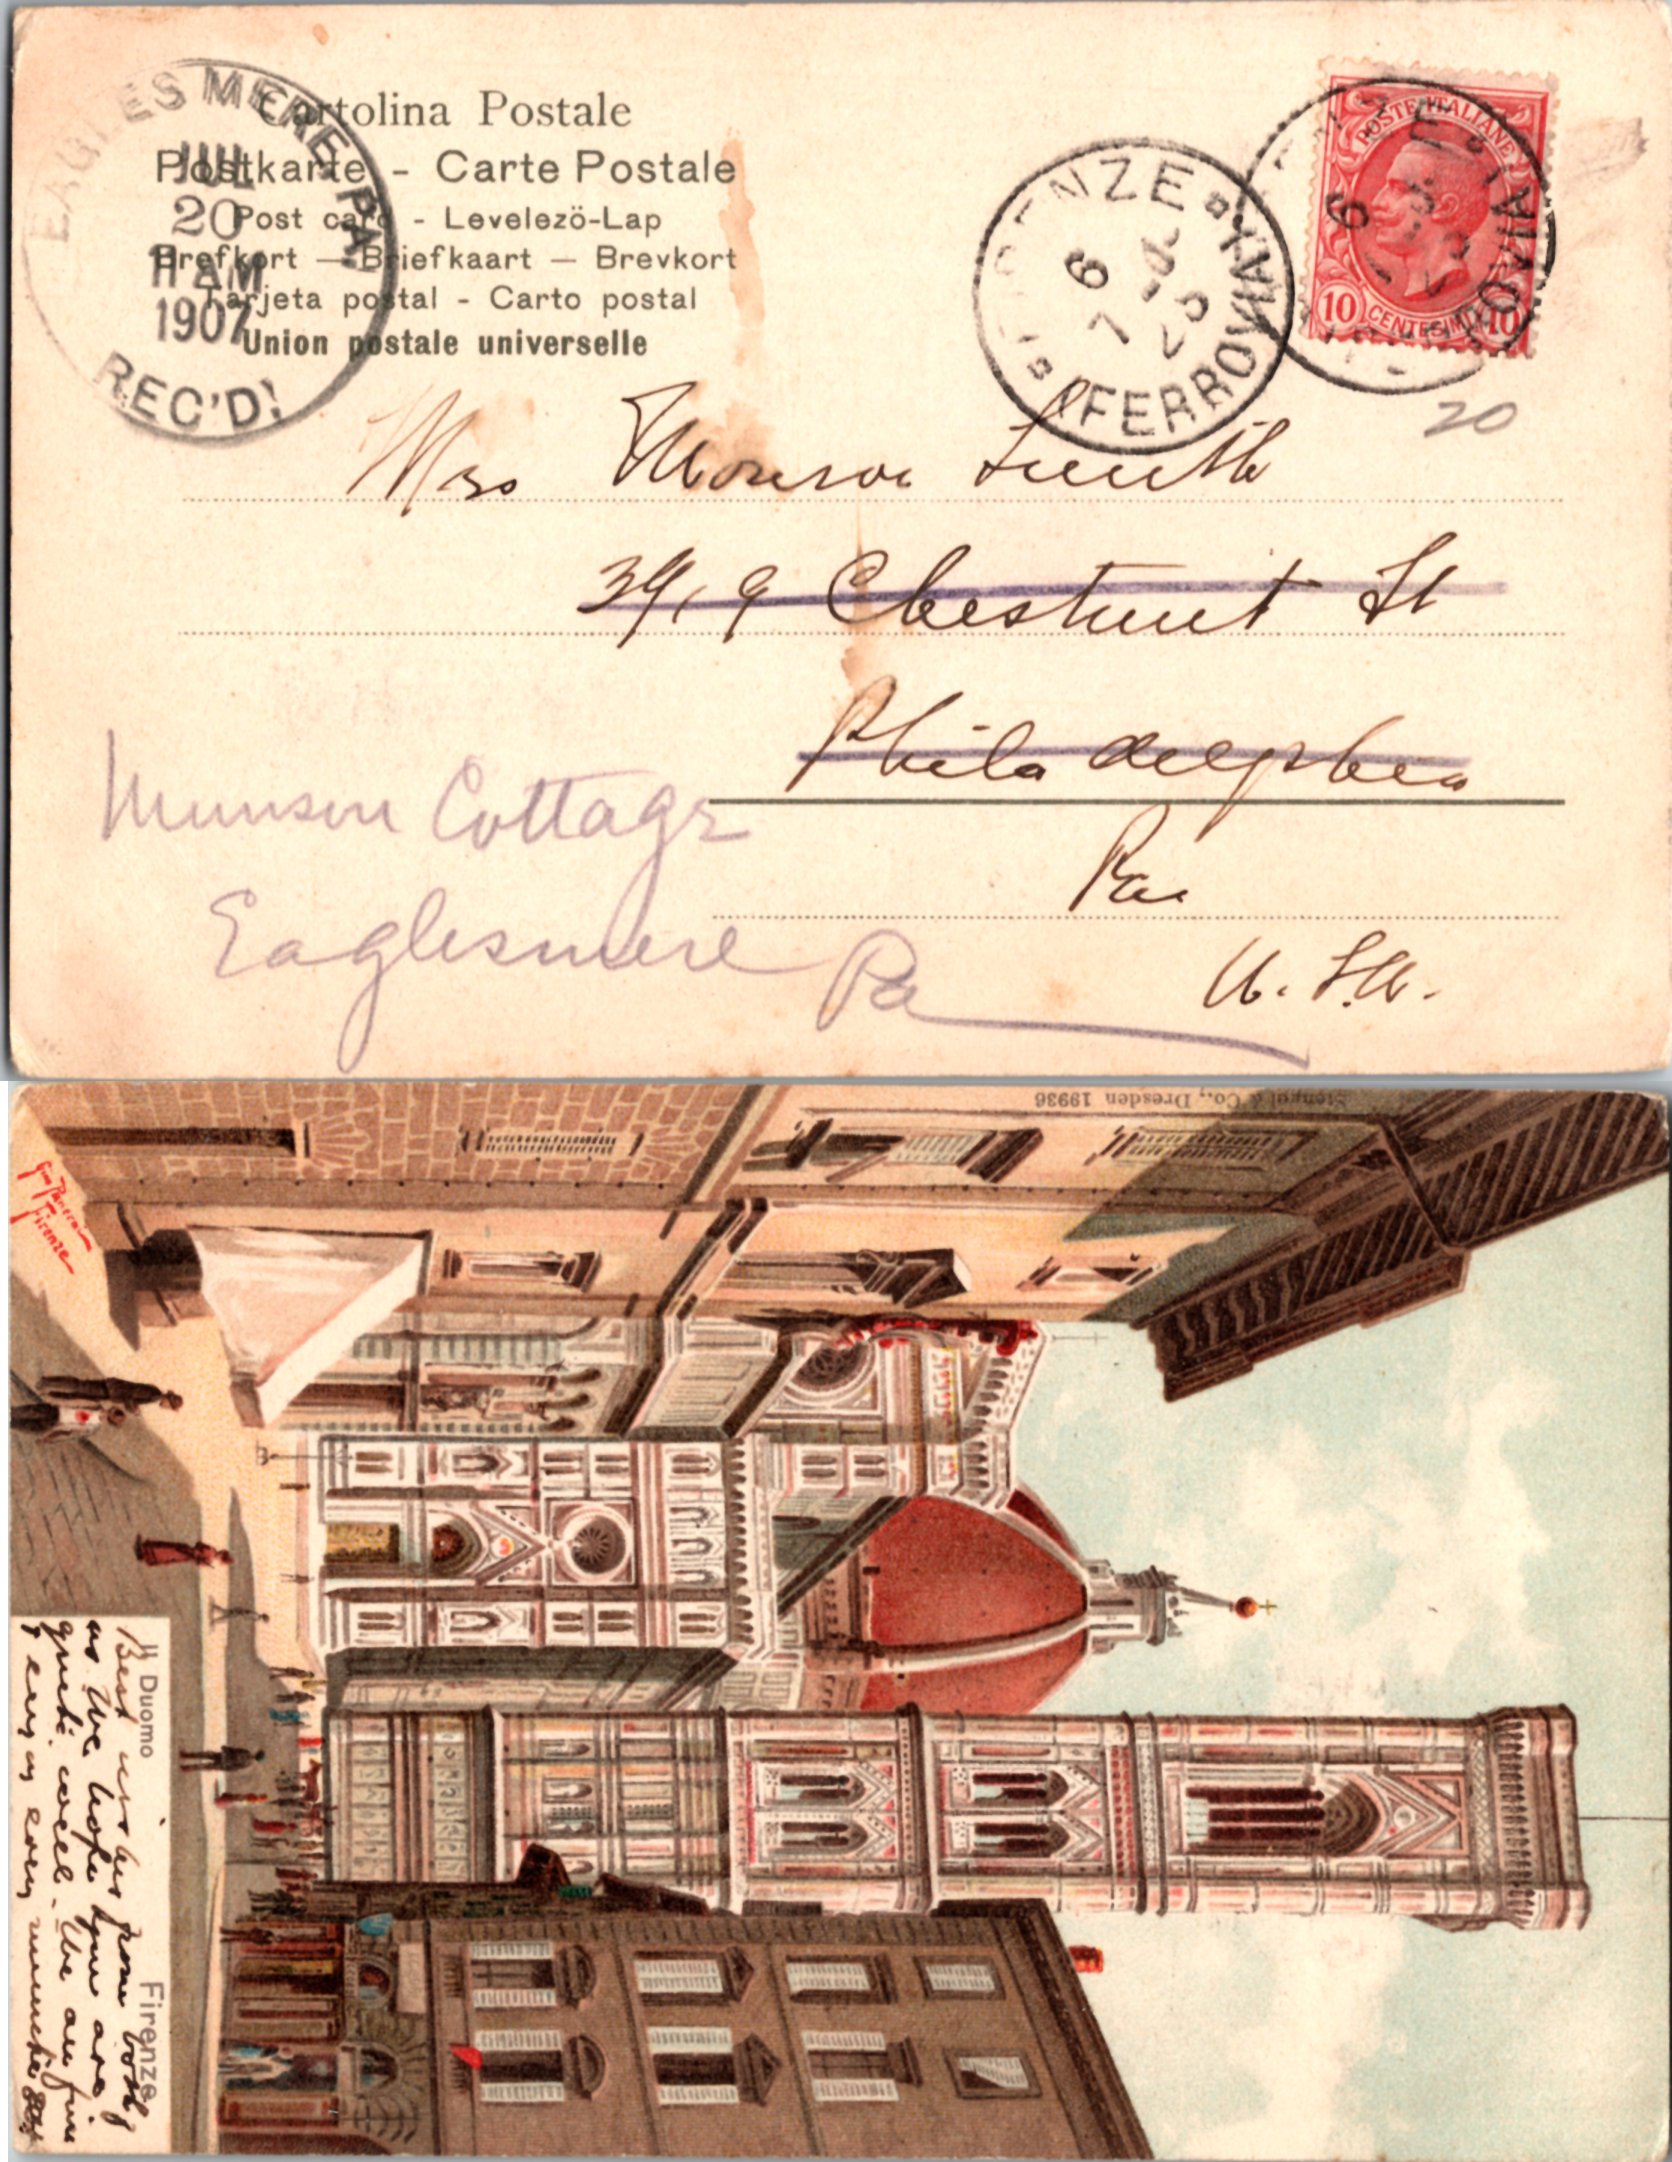 Cartolina Postale
Postkarte - Carte Postale
Post card - Levelezö-Lap
Brefkort — Briefkaart — Brevkort
Tarjeta postal - Carto postal
Union postale universelle
EAGLES MERE, PA.
JUL
20
11 AM
1907
REC'D.
FIRENZE
(FERROVIA)
6
7
POSTE ITALIANE
10 CENTESIMI 10
FERROVIA
20
Mrs Monroe Smith
3919 Chestnut St
Philadelphia
Pa.
U.S.A.
Munson Cottage
Eaglesmere Pa
Stengel & Co., Dresden 19936
Firenze
Il Duomo Firenze
Best wishes from both
us We hope you are
quite well. We are fine
enjoy every minute